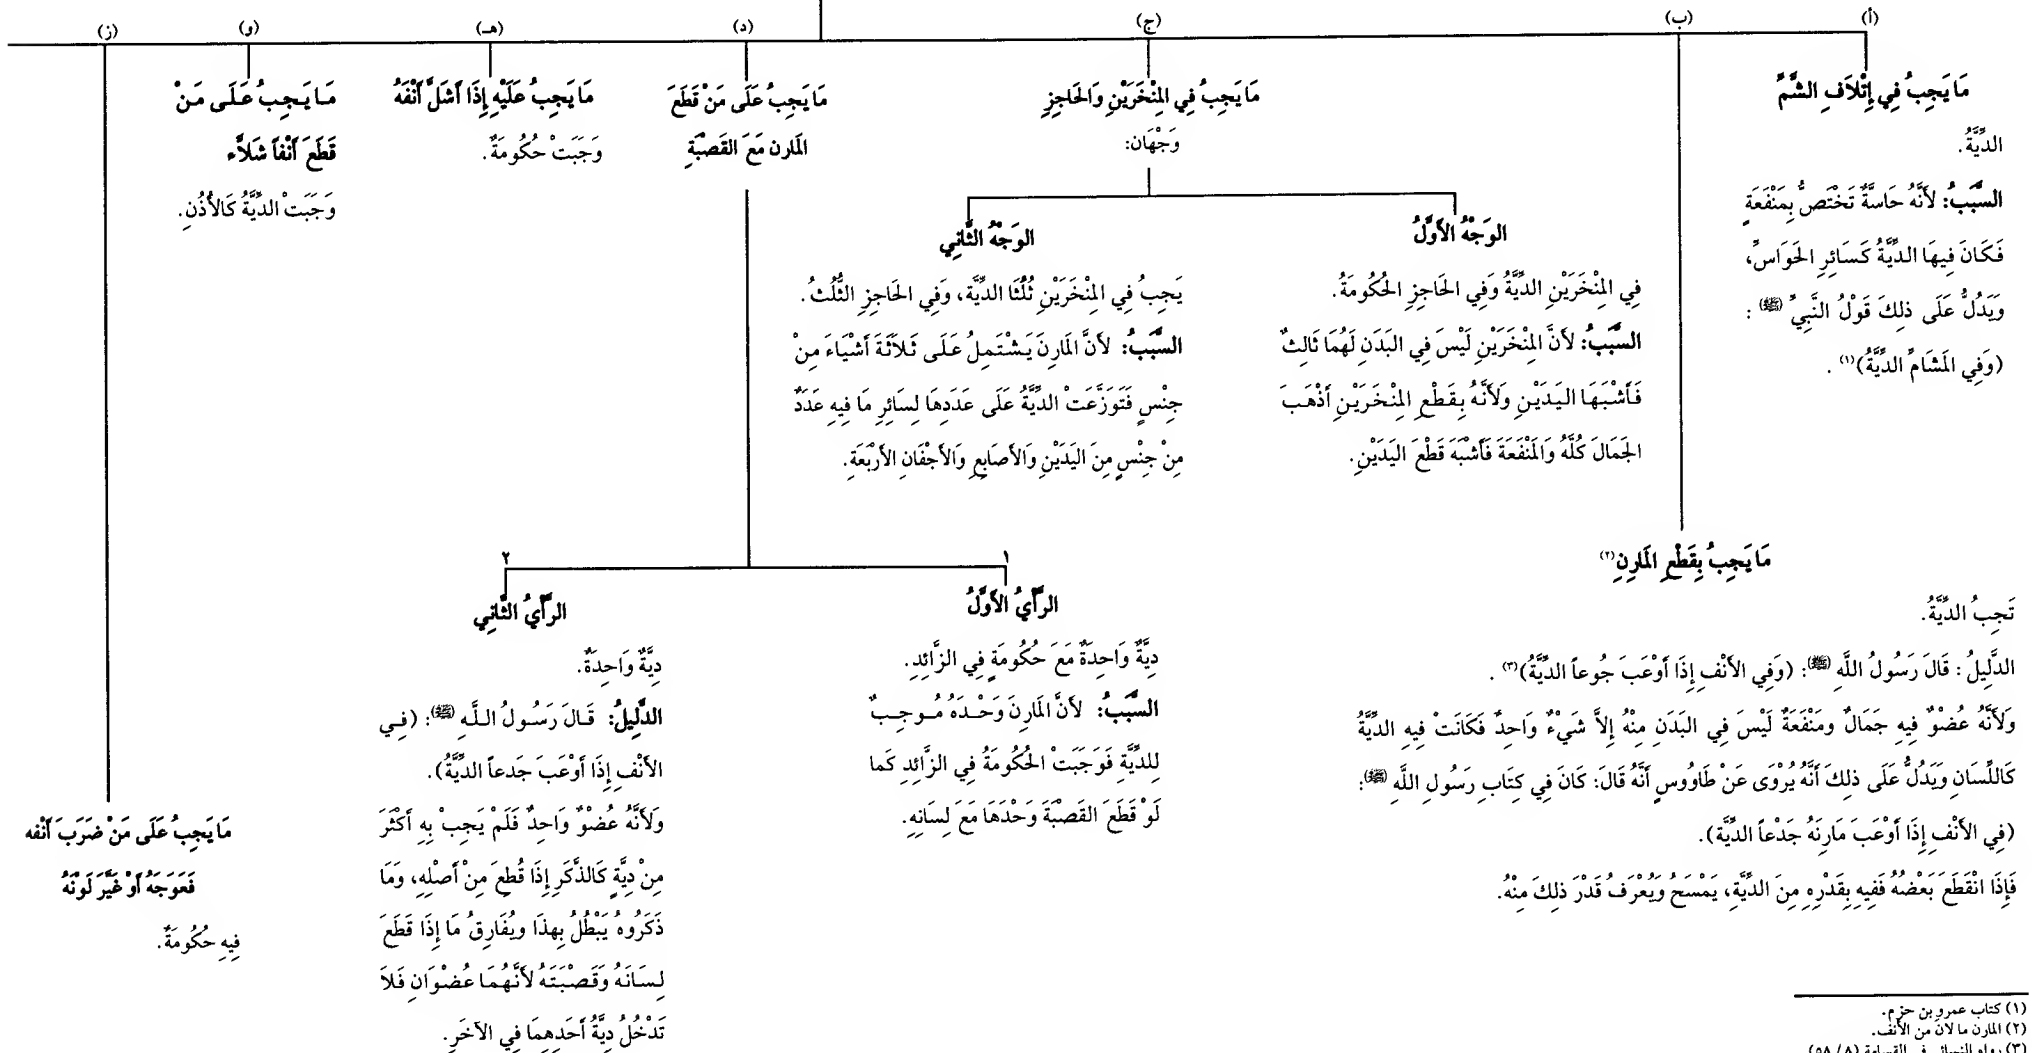 (أ)
مَا يَجِبُ فِي إِتْلَافِ الشَّمِّ
الدِّيَّةُ.
السَّبَبُ: لأَنَّهُ حَاسَّةٌ تَخْتَصُّ بِمَنْفَعَةٍ
فَكَانَ فِيهَا الدِّيَّةُ كَسَائِرِ الحَوَاسِّ،
وَيَدُلُّ عَلَى ذلِكَ قَوْلُ النَّبِيِّ (ﷺ) :
(وَفِي المَشَامِّ الدِّيَّةُ)(١) .
(ب)
مَا يَجِبُ بِقَطْعِ المَارِنِ(٢)
تَجِبُ الدِّيَّةُ.
الدَّلِيلُ : قَالَ رَسُولُ اللَّهِ (ﷺ): (وَفِي الأَنْفِ إِذَا أَوْعَبَ جُوعاً الدِّيَّةُ)(٣) .
وَلأَنَّهُ عُضْوٌ فِيهِ جَمَالٌ ومَنْفَعَةٌ لَيْسَ فِي البَدَنِ مِنْهُ إِلاَّ شَيْءٌ وَاحِدٌ فَكَانَتْ فِيهِ الدِّيَّةُ
كَاللِّسَانِ وَيَدُلُّ عَلَى ذلِكَ أَنَّهُ يُرْوَى عَنْ طَاوُوسٍ أَنَّهُ قَالَ: كَانَ فِي كِتَابِ رَسُولِ اللَّهِ (ﷺ):
(فِي الأَنْفِ إِذَا أَوْعَبَ مَارِنَهُ جَدْعاً الدِّيَّة).
فَإِذَا انْقَطَعَ بَعْضُهُ فَفِيهِ بِقَدْرِهِ مِنَ الدِّيَّةِ، يَمْسَحُ وَيُعْرَفُ قَدْرَ ذلِكَ مِنْهُ.
(ج)
مَا يَجِبُ فِي المِنْخَرَيْنِ وَالحَاجِزِ
وَجْهَان:
الوَجْهُ الأَوَّلُ
فِي المِنْخَرَيْنِ الدِّيَّةُ وَفِي الحَاجِزِ الحُكُومَةُ.
السَّبَبُ: لأَنَّ المِنْخَرَيْنِ لَيْسَ فِي البَدَنِ لَهُمَا ثَالِثٌ
فَأَشْبَهَا اليَدَيْنِ وَلأَنَّهُ بِقَطْعِ المِنْخَرَيْنِ أَذْهَبَ
الجَمَالَ كُلَّهُ وَالمَنْفَعَةَ فَأَشْبَهَ قَطْعَ اليَدَيْنِ.
الوَجْهُ الثَّانِي
يَجِبُ فِي المِنْخَرَيْنِ ثُلُثَا الدِّيَّة، وَفِي الحَاجِزِ الثُّلُثُ.
السَّبَبُ: لأَنَّ المَارِنَ يَشْتَمِلُ عَلَى ثَلاَثَةَ أَشْيَاءَ مِنْ
جِنْسٍ فَتَوَزَّعَتْ الدِّيَّةُ عَلَى عَدَدِهَا لِسَائِرِ مَا فِيهِ عَدَدٌ
مِنْ جِنْسٍ مِنَ اليَدَيْنِ وَالأَصَابِعِ وَالأَجْفَانِ الأَرْبَعَةِ.
(د)
مَا يَجِبُ عَلَى مَنْ قَطَعَ
المَارن مَعَ القَصْبَةِ
١
الرَّأْيُ الأَوَّلُ
دِيَّةٌ وَاحِدَةٌ مَعَ حُكُومَةٍ فِي الزَّائِدِ.
السَّبَبُ: لأَنَّ المَارِنَ وَحْدَهُ مُوجِبٌ
لِلدِّيَّةِ فَوَجَبَتْ الحُكُومَةُ فِي الزَّائِدِ كَما
لَوْ قَطَعَ القَصْبَةَ وَحْدَهَا مَعَ لِسَانِهِ.
٢
الرَّأْيُ الثَّانِي
دِيَّةٌ وَاحِدَةٌ.
الدَّلِيلُ: قَالَ رَسُولُ اللَّهِ (ﷺ): (فِي
الأَنْفِ إِذَا أَوْعَبَ جَدعاً الدِّيَّةُ).
وَلأَنَّهُ عُضْوٌ وَاحِدٌ فَلَمْ يَجِبْ بِهِ أَكْثَرَ
مِنْ دِيَّةٍ كَالذَّكَرِ إِذَا قُطِعَ مِنْ أَصْلِهِ، وَمَا
ذَكَرُوهُ يَبْطُلُ بِهذَا ويُفَارِقُ مَا إِذَا قَطَعَ
لِسَانَهُ وَقَصْبَتَهُ لأَنَّهُمَا عُضْوَانِ فَلاَ
تَدْخُلُ دِيَّةُ أَحَدِهِمَا فِي الآخَرِ.
(هـ)
مَا يَجِبُ عَلَيْهِ إِذَا أَشَلَّ أَنْفَهُ
وَجَبَتْ حُكُومَةٌ.
(و)
مَا يَجِبُ عَلَى مَنْ
قَطَعَ أَنْفاً شَلاَّء
وَجَبَتْ الدِّيَّةُ كَالأُذُنِ.
(ز)
مَا يَجِبُ عَلَى مَنْ ضَرَبَ أَنْفه
فَعَوَجَهُ أَوْ غَيَّرَ لَوْنَهُ
فِيهِ حُكُومَةٌ.
(١) كتاب عمرو بن حزم.
(٢) المارن ما لان من الأنف.
(٣) رواه النسائي في القسامة (٨/ ٥٨)